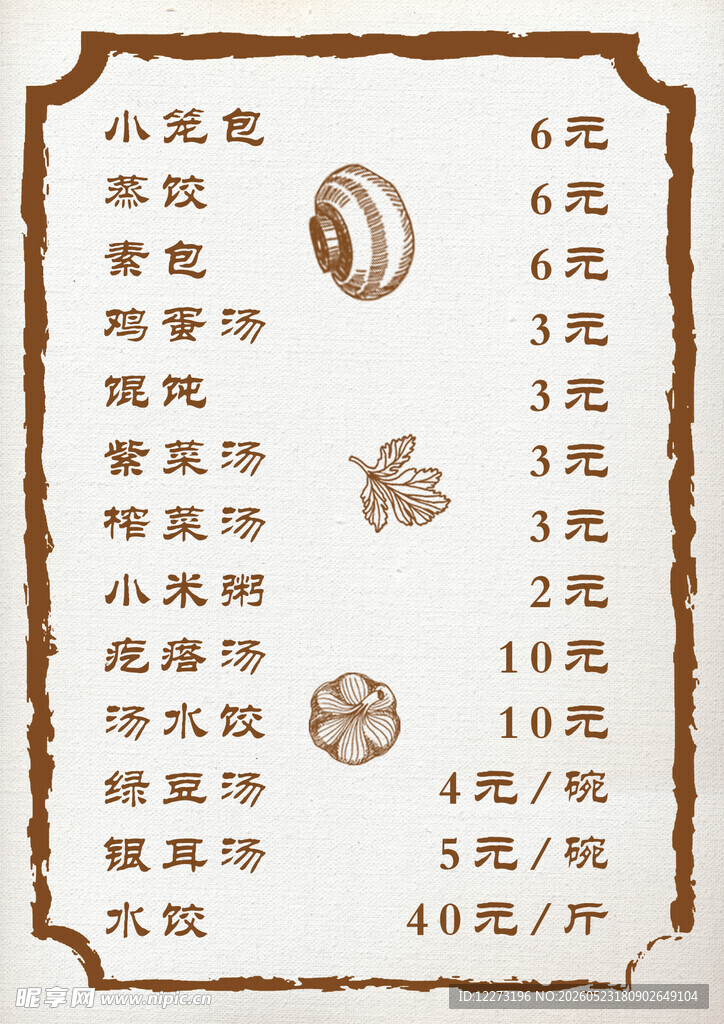 小笼包 6元
蒸饺 6元
素包 6元
鸡蛋汤 3元
馄饨 3元
紫菜汤 3元
榨菜汤 3元
小米粥 2元
疙瘩汤 10元
汤水饺 10元
绿豆汤 4元/碗
银耳汤 5元/碗
水饺 40元/斤
昵享网 www.nipic.cn
ID:12273196 NO:20260523180902649104